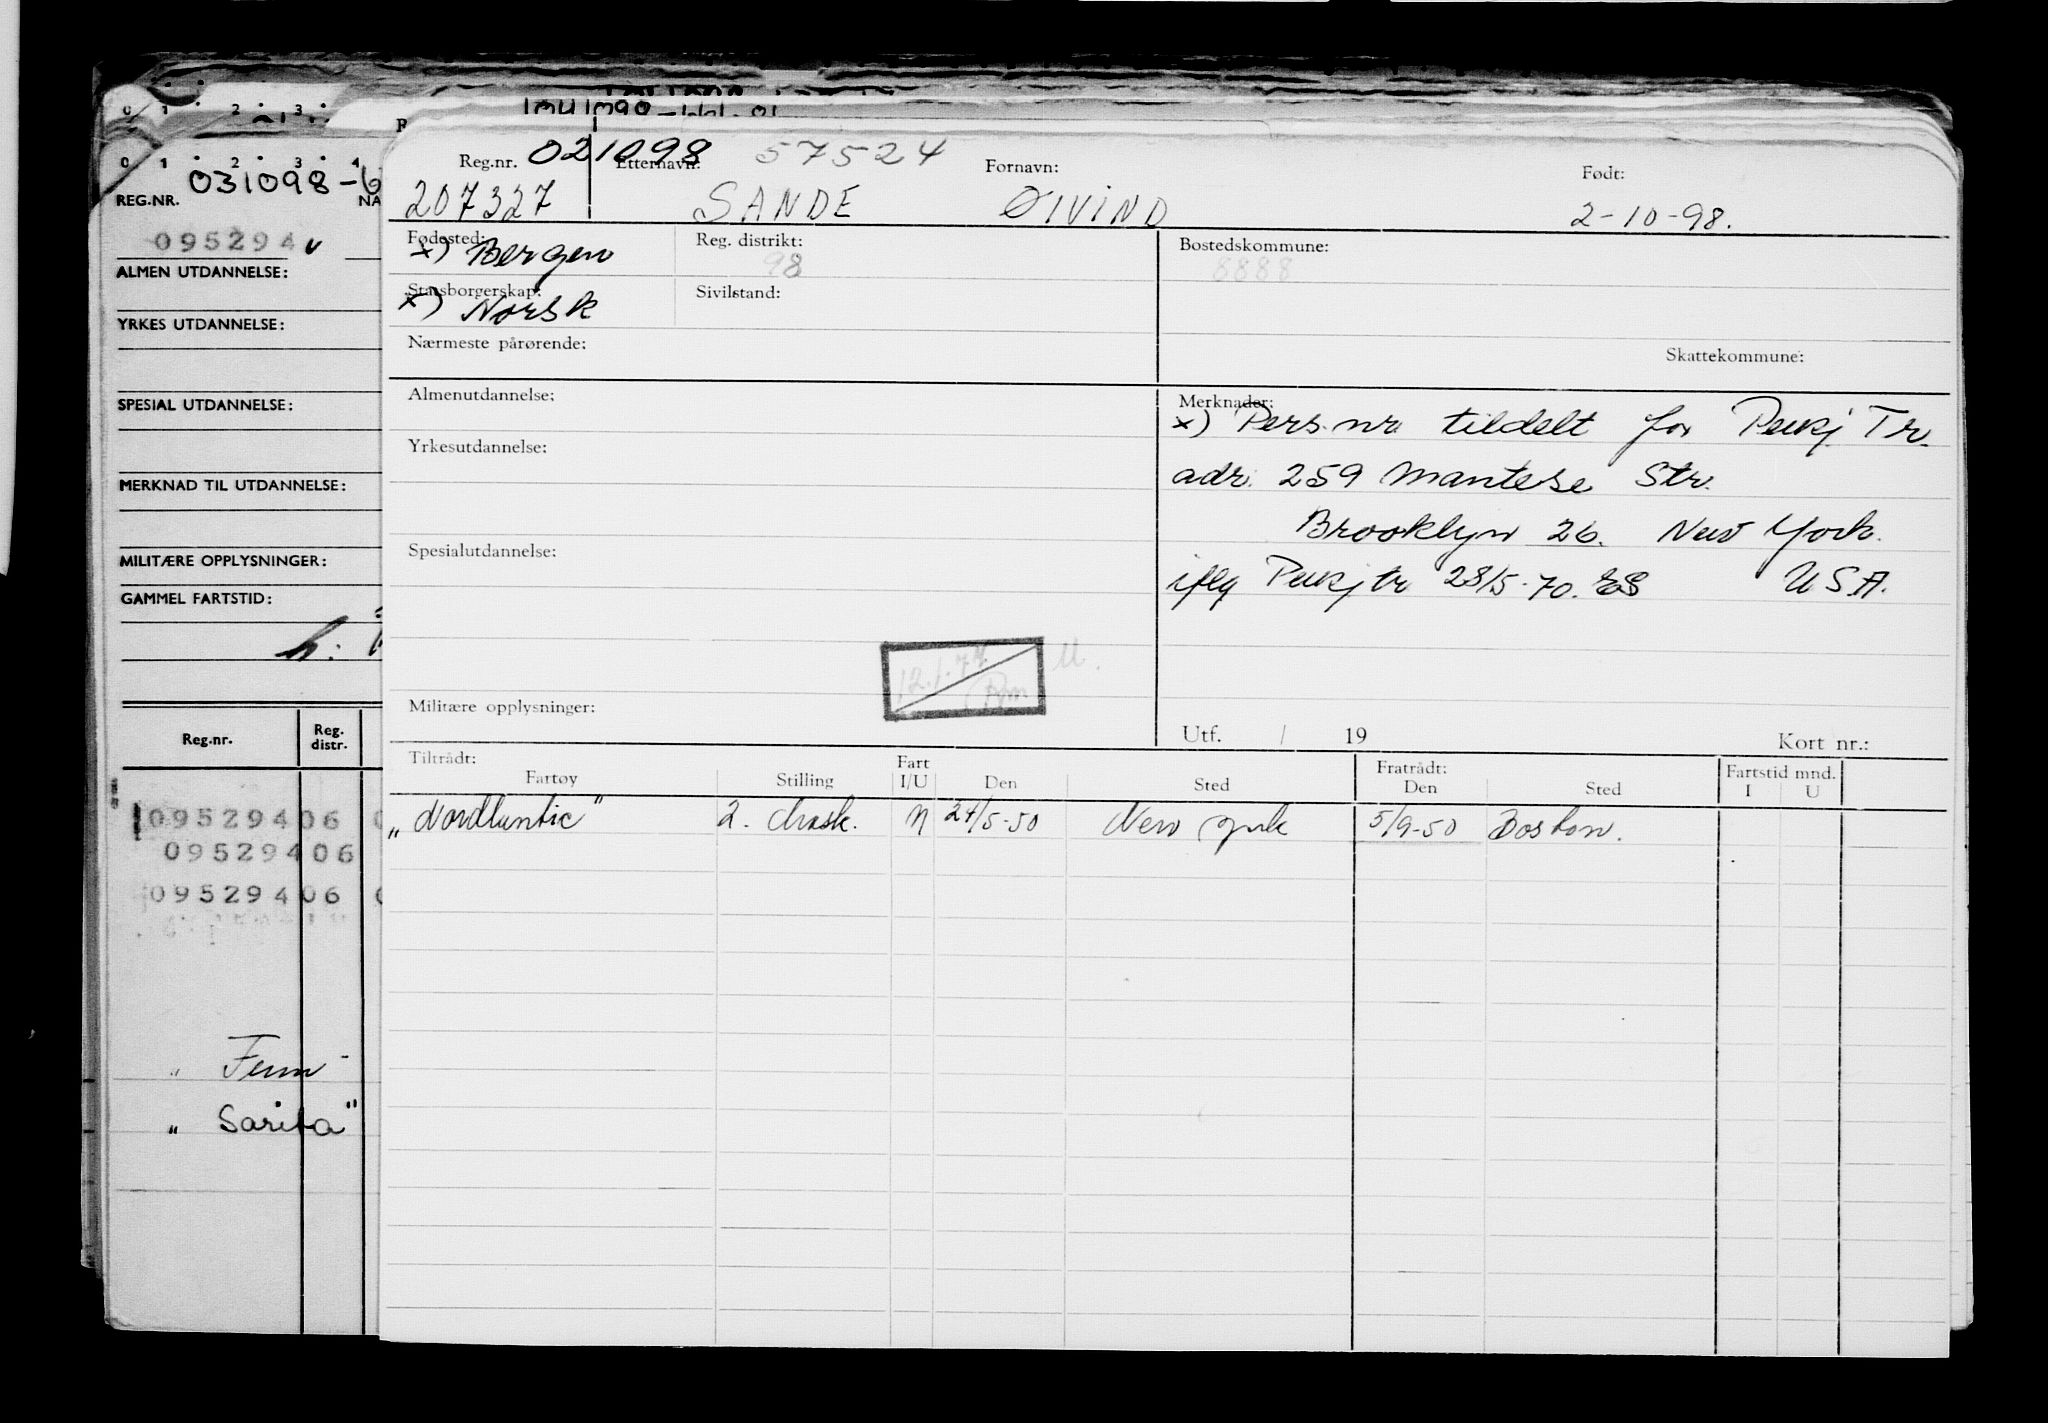 0 1 2 3
0 1 2 3 4
REG.NR. 031098-6
NA
095294 v
ALMEN UTDANNELSE:
YRKES UTDANNELSE:
SPESIAL UTDANNELSE:
MERKNAD TIL UTDANNELSE:
MILITÆRE OPPLYSNINGER:
GAMMEL FARTSTID:
h:
Reg.nr. Reg. distr.
09529406
09529406
09529406
„ Fern "
„ Sarita"
Reg.nr. 021098 Etternavn: 57524 Fornavn: Født:
207327 SANDE ØIVIND 2-10-98.
Fødested: x) Bergen Reg. distrikt: 98 Bostedskommune: 8888
Statsborgerskap: x) Norsk Sivilstand:
Nærmeste pårørende: Skattekommune:
Almenutdannelse: Merknader:
x) Pers.nr. tildelt for Tr.
Yrkesutdannelse:
adr. 259 Str.
Brooklyn 26. New York.
Spesialutdannelse:
iflg 28/5-70. ES USA.
12.1.77 M.
Militære opplysninger:
Utf. / 19 Kort nr.:
Tiltrådt: Fart Fratrådt: Fartstid mnd.
Fartøy Stilling I/U Den Sted Den Sted I U
„Nordlantic" 2. Mask. N 24/5-50 New York 5/9-50 Boston.